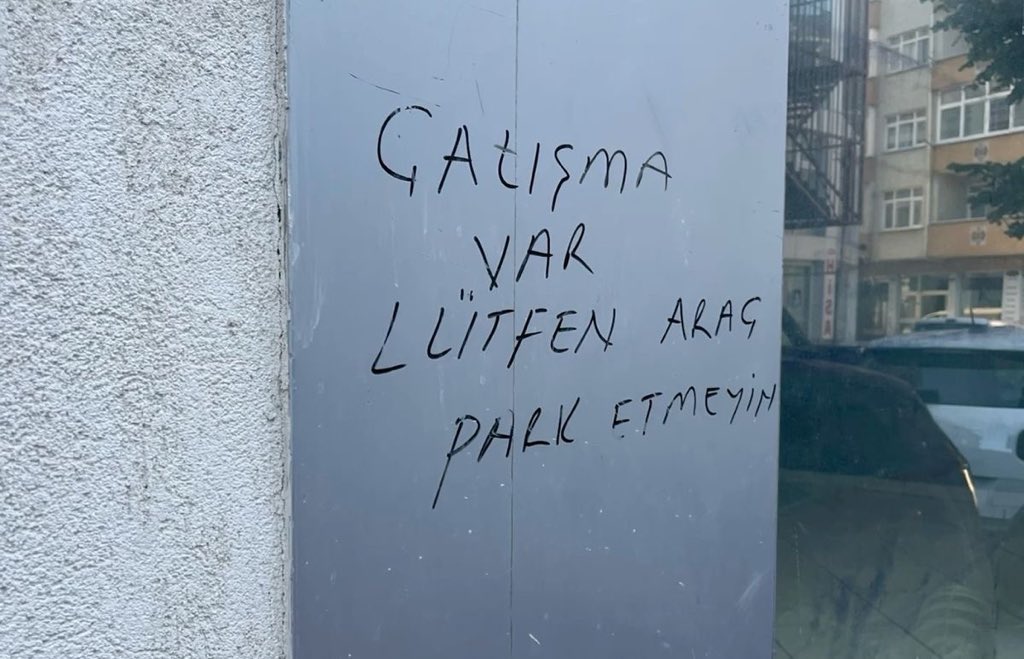 ÇALIŞMA
VAR
LÜTFEN ARAÇ
PARK ETMEYİN